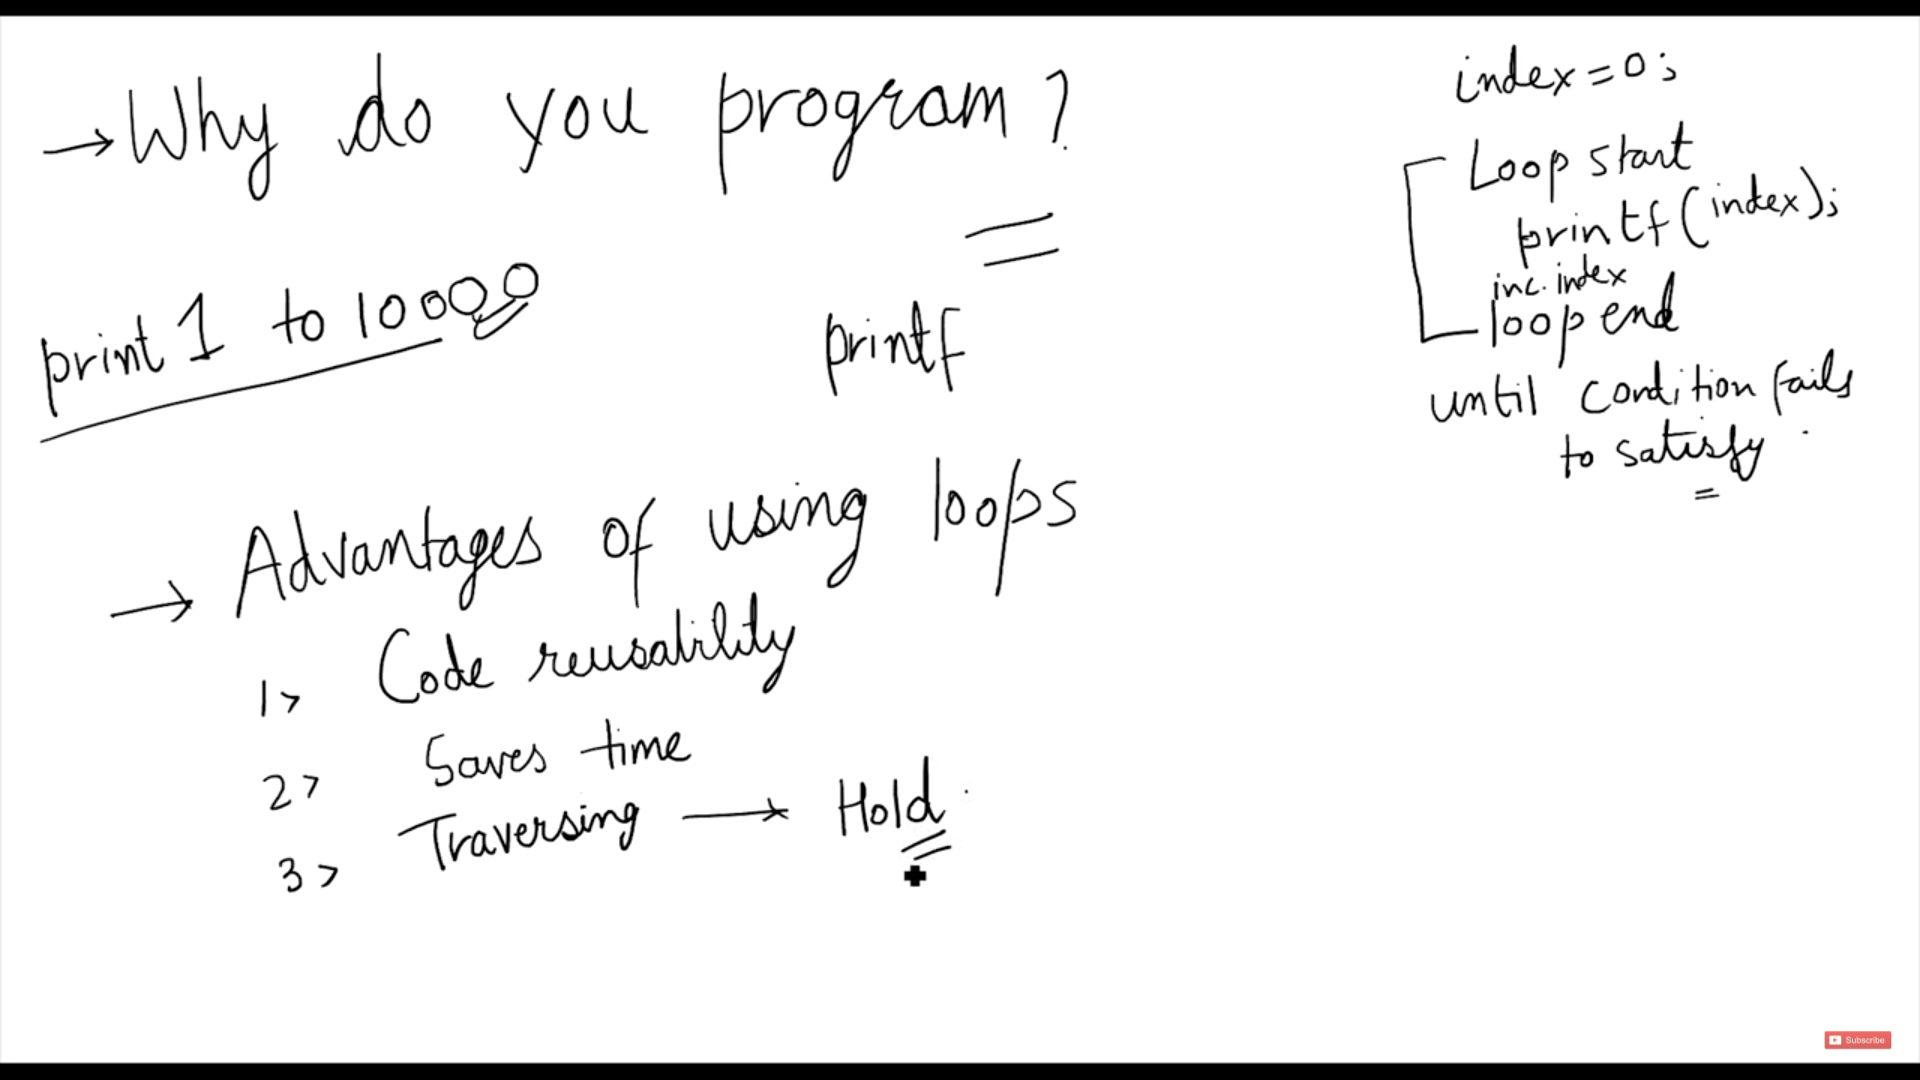 → Why do you program?
print 1 to 10000
printf
→ Advantages of using loops
1> Code reusability
2> Saves time
3> Traversing → Hold
index = 0;
Loop start
printf(index);
inc. index
loop end
until condition fails
to satisfy
Subscribe